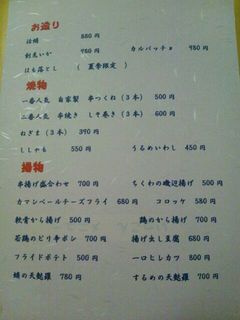 お造り
活蛸 880円
刺身いか 780円 カルパッチョ 980円
はも落とし （ 夏季限定 ）
焼物
一番人気 自家製 串つくね（３本） 500円
二番人気 串焼き しそ巻き（３本） 600円
ねぎま（３本） 390円
ししゃも 550円 うるめいわし 450円
揚物
串揚げ盛合わせ 700円 ちくわの磯辺揚げ 500円
カマンベールチーズフライ 680円 コロッケ 580円
軟骨から揚げ 500円 鶏のから揚げ 700円
若鶏のピリ辛ポン 700円 揚げ出し豆腐 680円
フライドポテト 500円 一口ヒレカツ 800円
蛸の天麩羅 780円 するめの天麩羅 700円